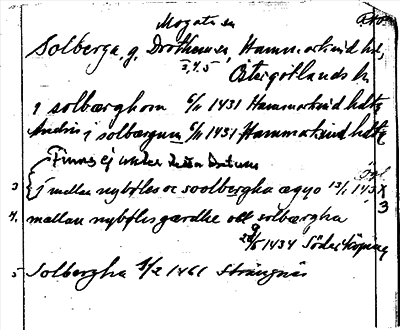 Mogata sn
Solberga, g. Drothemer, Hammarkind hd,
3, 4, 5
Östergötlands l.
j solbærghom 6/11 1431 Hammarkind hdtg
Andris j solbærgum 6/11 1431 Hammarkind hdtg
Finns ej under detta Datum
3 j mellan nybøles oc soolbergha ægyo 13/1
3
4. mællan nybølis gærdhe oc solbærgha
1434 Söderköping
5 Solbergha 1/2 1461 Strängnäs